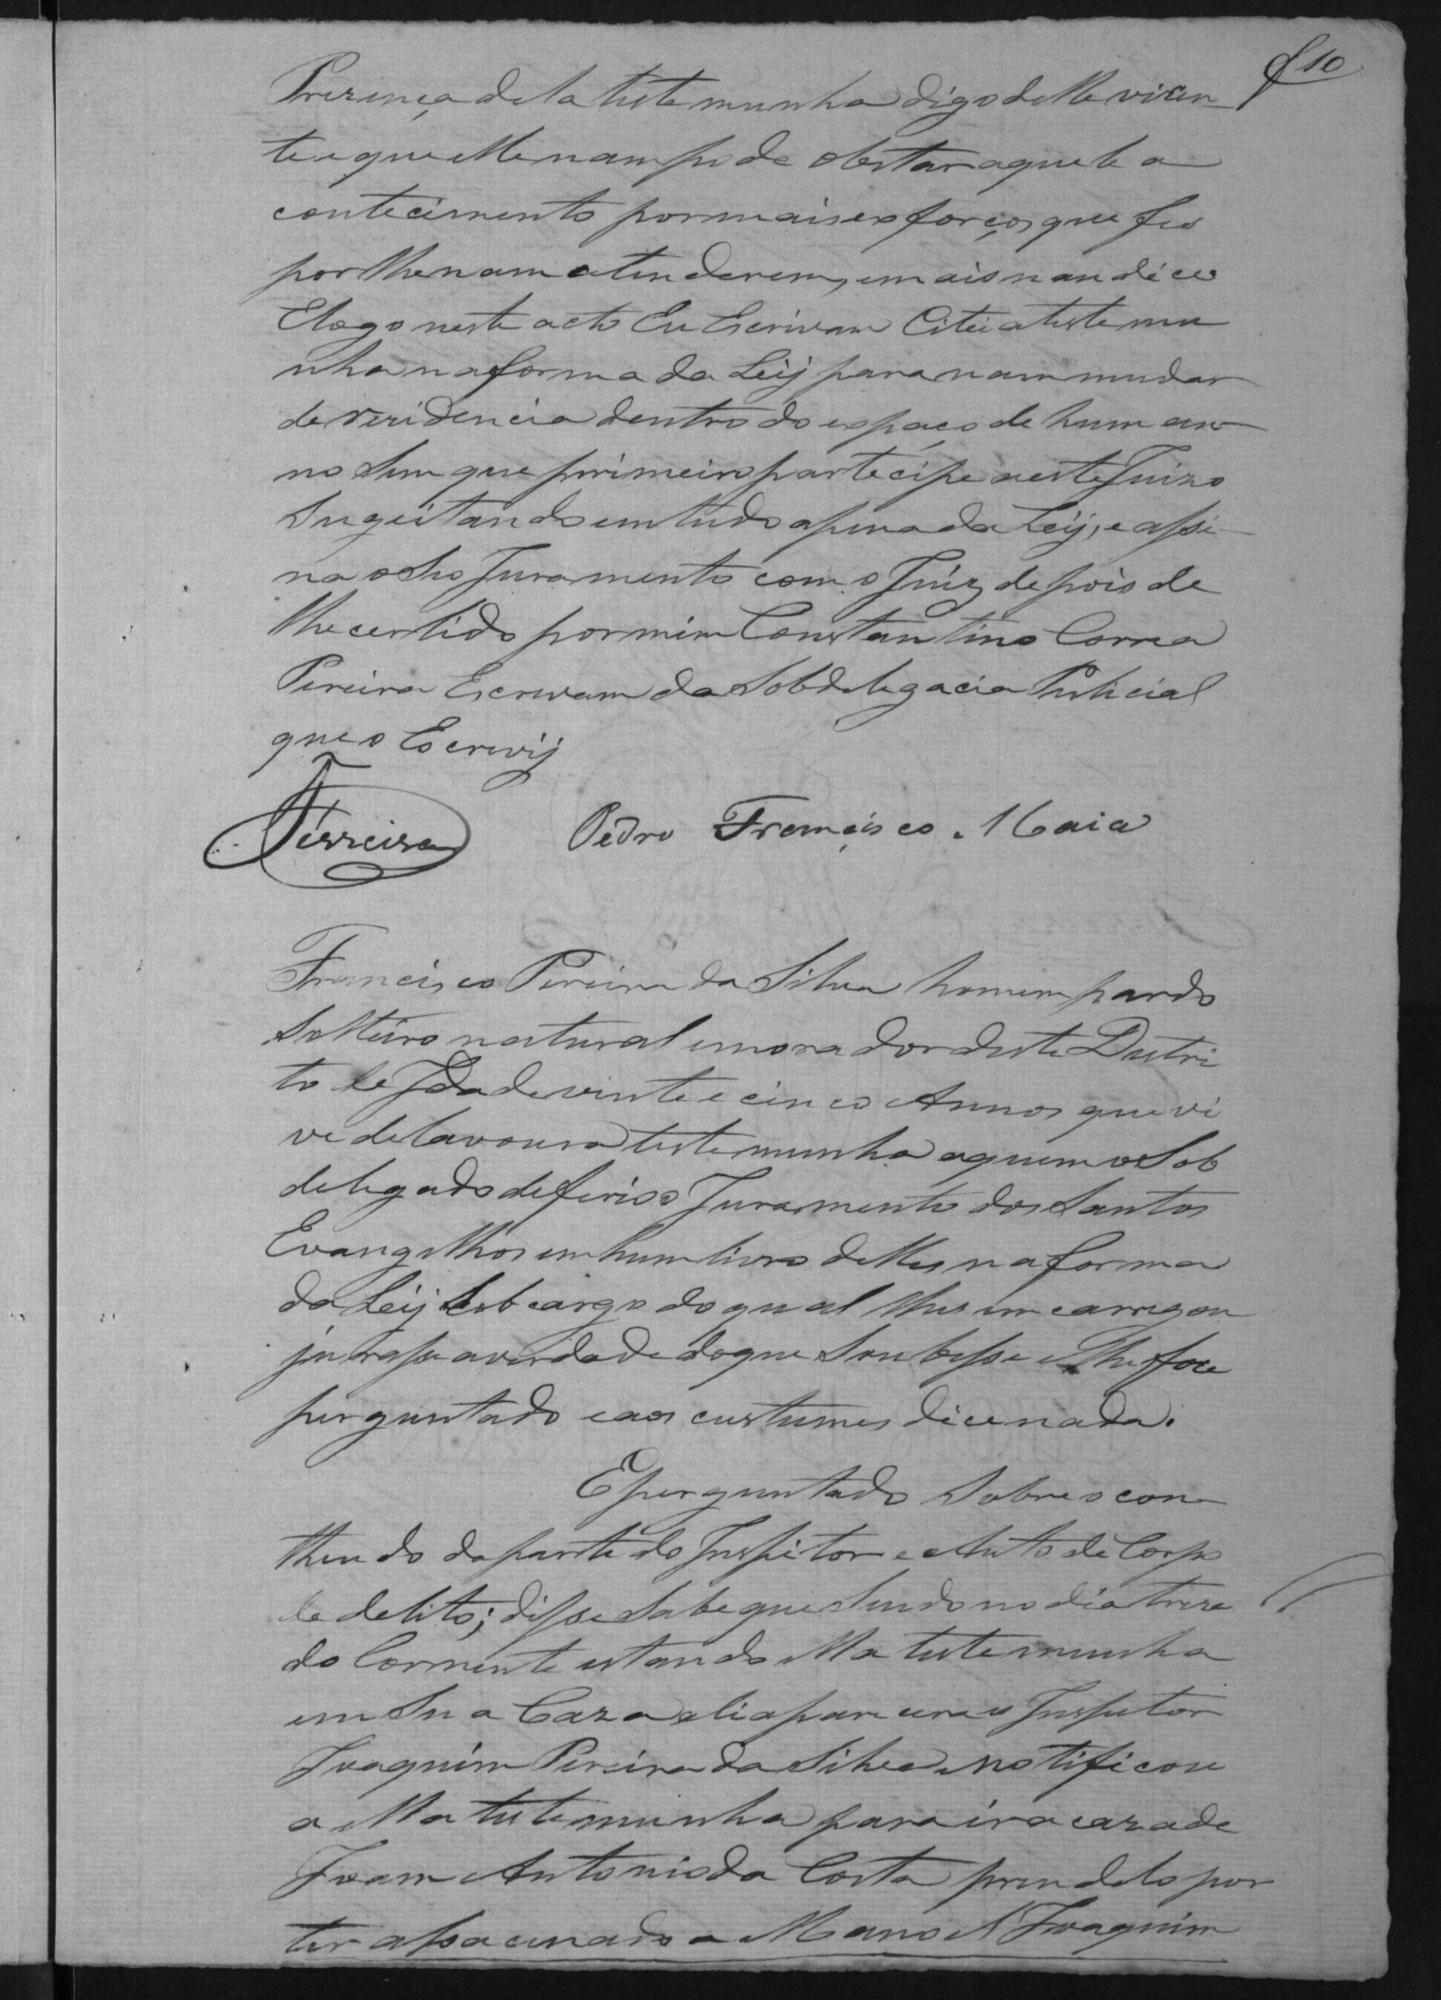 f 10
Prezença dela testemunha digo delle vicen
te e que elle nam pode obstar aquele a
contecimento por mais esforços que fes
por lhe nam atenderem, e mais nan dice
E logo neste acto Eu Escrivam Citei a testemu
nha na forma da Leÿ para nam mudar
de rezidencia dentro do espaço de hum an
no sem que primeiro partecipe a este Juizo
Sugeitando em tudo a pena da Leÿ, e assi
na o Seo Juramento com o Juiz depois de
lhe ser lido por mim Constantino Correa
Pereira Escrivam da Sobdelegacia Pulicial
que o Escrevÿ
Ferreira Pedro Françisco Maia
Francisco Pereira da Silva homem pardo
Solteiro natural e morador deste Destri
to de Idade vinte e cinco Annos que vi
ve de lavoura testemunha aquem o Sob
delegado deferio o Juramento dos Santos
Evangelhos em hum livro delles na forma
da Leÿ Sob cargo do qual lhes emcarregou
jurasse a verdade do que Soubesse e lhe fose
perguntado e aos custumes dice nada.
E perguntado Sobre o con
theudo da parte do Inspetor e Auto de Corpo
de delito; disse Sabe que Sendo no dia treze
do Corrente estando ella testemunha
em Sua Caza ali aparecera o Inspetor
Joaquim Pereira da Silva e notificou
a ella testemunha para ir a caza de
Joam Antonio da Costa prendelo por
ter assacinado a Manoel Joaquim